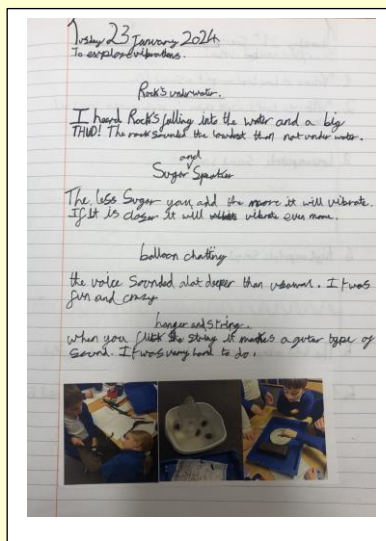 Tusday 23 January 2024
To explore vibrations.
Rock's underwater.
I heard Rock's falling into the water and a big
THUD! The rock sounds the lowdest than not under water.
and
Sugar Speaker
The less Sugar you add the more it will vibrate.
If it is closer it will vibrate even more.
balloon chatting
the voice sounded alot deeper than usawul. It was
fun and crazy
hanger and string.
when you flick the string it makes a gutar type of
sound. It was very hard to do.